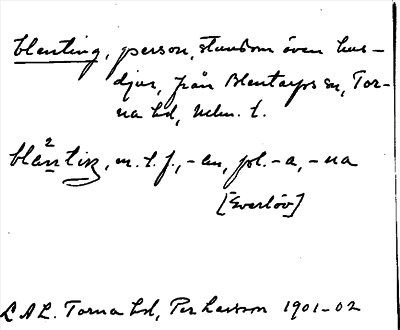 blenting, person, stundom även hus-
djur, från Blentarps sn, Tor-
na hd, Mlm. l.
blän²tiŋ, m. l. f., -en, pl. -a, -na
[Everlöv]
L A L. Torna hd, Per Larsson 1901-02